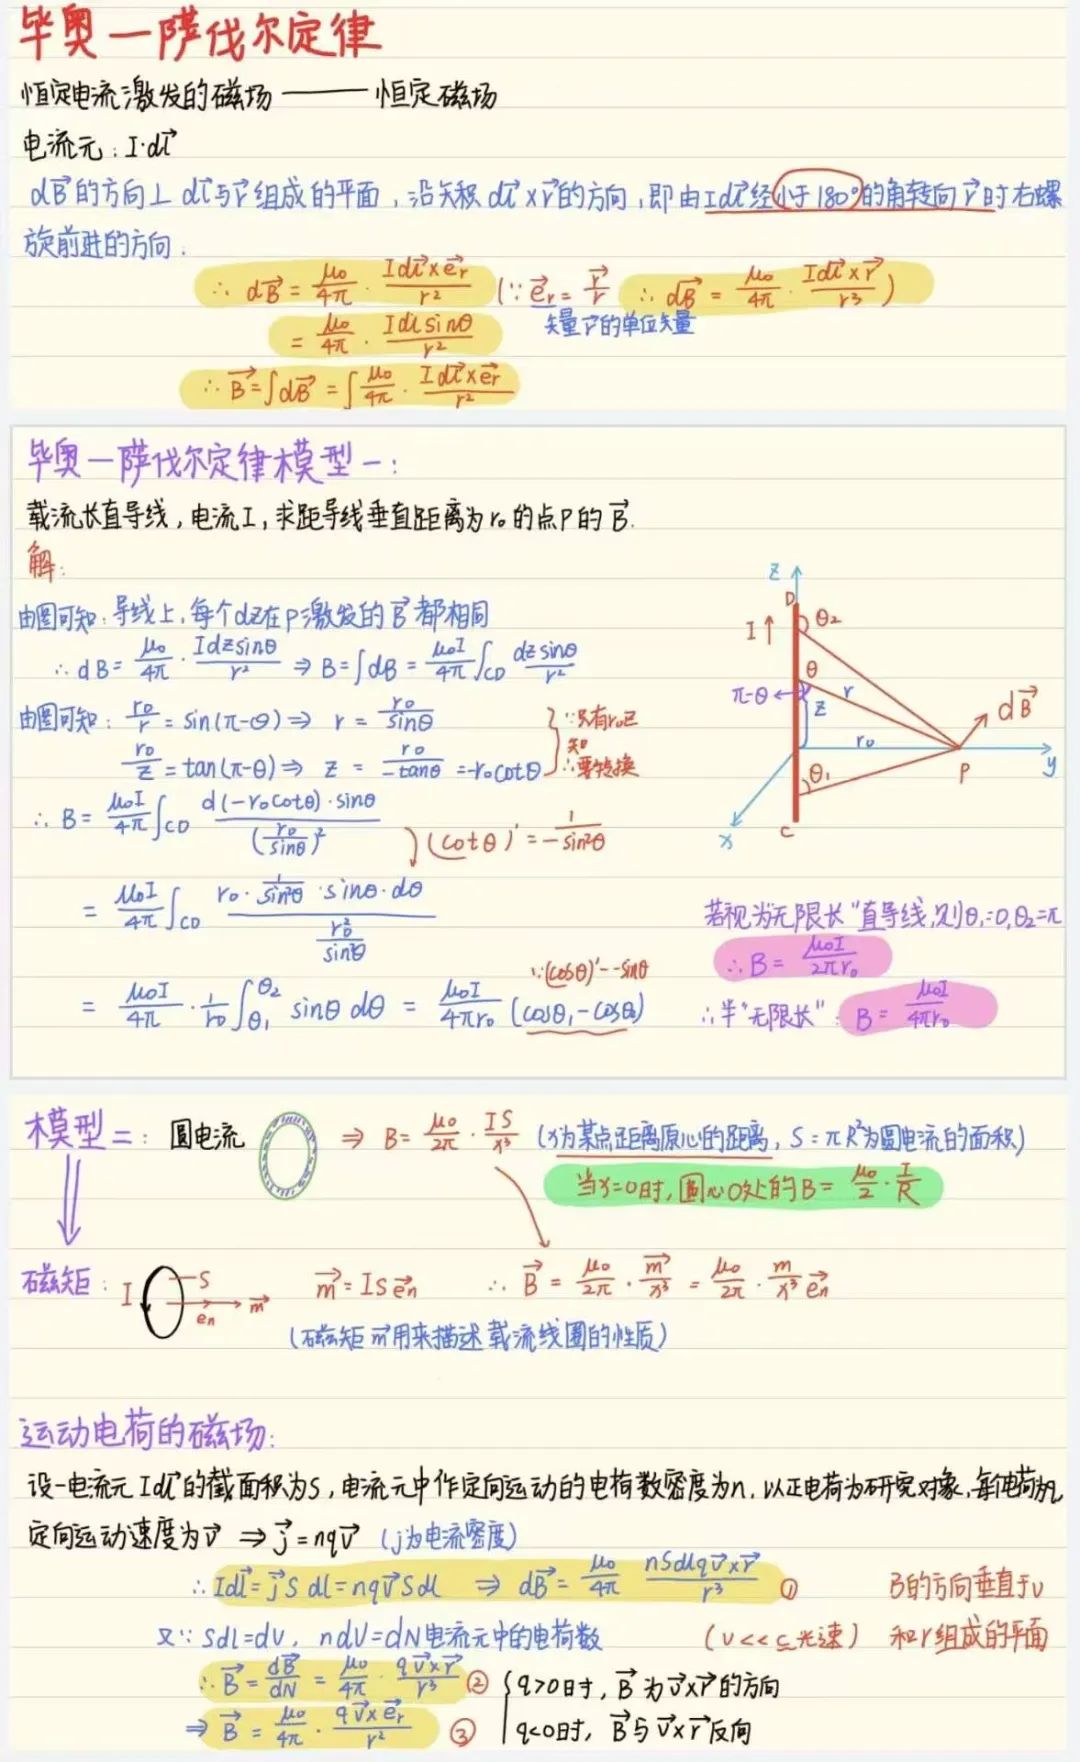 毕奥一萨伐尔定律
恒定电流激发的磁场 —— 恒定磁场
电流元：I·dl⃗
dB⃗的方向⊥dl⃗与r⃗组成的平面，沿矢积dl⃗×r⃗的方向，即由Idl⃗经小于180°的角转向r⃗时右螺
旋前进的方向.
∴ dB⃗ = μ₀/4π · Idl⃗×e⃗r/r² (∵ e⃗r = r⃗/r ∴ dB⃗ = μ₀/4π · Idl⃗×r⃗/r³)
矢量r⃗的单位矢量
= μ₀/4π · Idlsinθ/r²
∴ B⃗=∫dB⃗ = ∫μ₀/4π · Idl⃗×e⃗r/r²
毕奥一萨伐尔定律模型一：
载流长直导线，电流I，求距导线垂直距离为r₀的点P的B⃗.
解：
由图可知：导线上，每个dz在P激发的B⃗都相同
∴ dB = μ₀/4π · Idzsinθ/r² ⇒ B=∫dB = μ₀I/4π ∫CD dzsinθ/r²
由图可知：r₀/r = sin(π-θ) ⇒ r = r₀/sinθ
r₀/z = tan(π-θ) ⇒ z = r₀/-tanθ = -r₀cotθ
∵只有r₀已
知
∴要转换
∴ B = μ₀I/4π ∫CD d(-r₀cotθ)·sinθ/(r₀/sinθ)²
(cotθ)' = -1/sin²θ
= μ₀I/4π ∫CD r₀·1/sin²θ·sinθ·dθ/(r₀²/sin²θ)
∵(cosθ)'=-sinθ
= μ₀I/4π · 1/r₀ ∫θ₁^θ₂ sinθ dθ = μ₀I/4πr₀ (cosθ₁-cosθ₂)
z
D
θ₂
I↑
θ
π-θ
r
z
dB⃗
r₀
P
y
θ₁
x
C
若视为"无限长"直导线，则θ₁=0，θ₂=π
∴ B = μ₀I/2πr₀
∴半"无限长"：B = μ₀I/4πr₀
模型二：圆电流 ⇒ B = μ₀/2π · IS/x³ (x为某点距离原心的距离，S=πR²为圆电流的面积)
当x=0时，圆心O处的B = μ₀/2 · I/R
磁矩：I S en m⃗ m⃗ = ISe⃗n ∴ B⃗ = μ₀/2π · m⃗/x³ = μ₀/2π · m/x³ e⃗n
(磁矩m⃗用来描述载流线圈的性质)
运动电荷的磁场：
设一电流元Idl⃗的截面积为S，电流元中作定向运动的电荷数密度为n，以正电荷为研究对象，每电荷为q
定向运动速度为v⃗ ⇒ j⃗=nqv⃗ (j为电流密度)
∴ Idl⃗ = j⃗Sdl = nqv⃗Sdl ⇒ dB⃗ = μ₀/4π nSdlqv⃗×r⃗/r³ ①
B的方向垂直于v
又∵ Sdl=dV，ndV=dN电流元中的电荷数 (v<<c光速)
和r组成的平面
∴ B⃗ = dB⃗/dN = μ₀/4π · qv⃗×r⃗/r³ ② { q>0时，B⃗为v⃗×r⃗的方向
⇒ B⃗ = μ₀/4π · qv⃗×e⃗r/r² ③ q<0时，B⃗与v⃗×r⃗反向